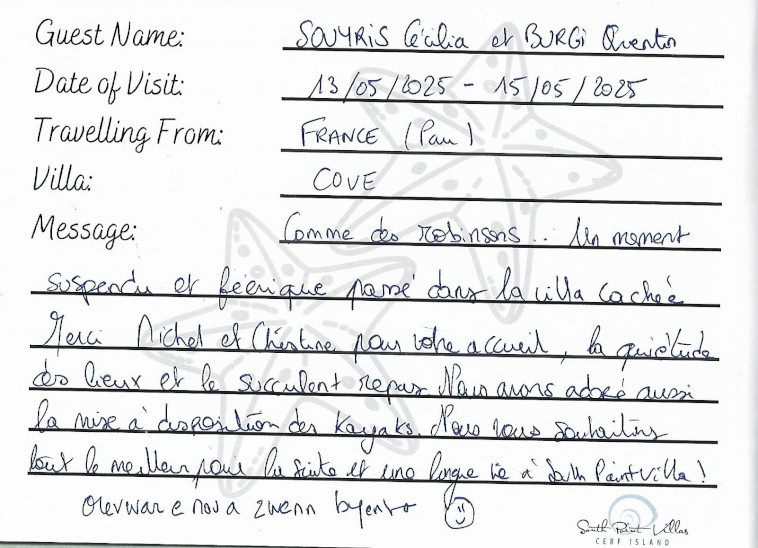 Guest Name: SOUYRIS Cécilia et BURGI Quentin
Date of Visit: 13/05/2025 - 15/05/2025
Travelling From: FRANCE (Pau)
Villa: COVE
Message: Comme des robinsons... Un moment
suspendu et féérique passé dans la villa cachée
Merci Michel et Christine pour votre accueil, la quiétude
des lieux et le succulent repas Nous avons adoré aussi
la mise à disposition des Kayaks. Nous vous souhaitons
tout le meilleur pour la suite et une longue vie à South Point Villa!
orevwar e nou a zwenn byento
South Point Villas
CERF ISLAND